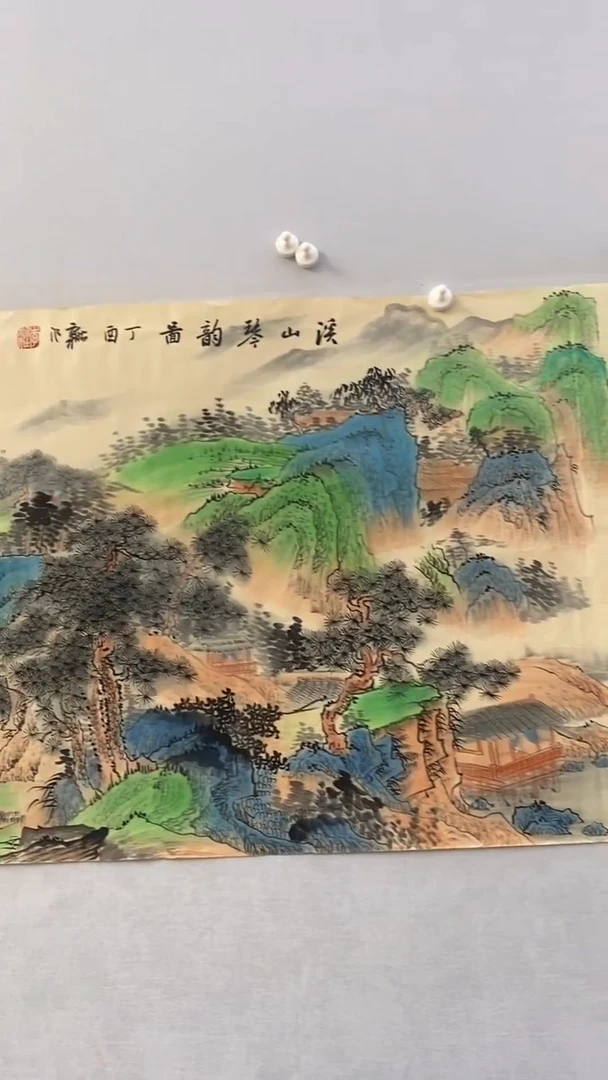 溪山琴韵图 丁酉